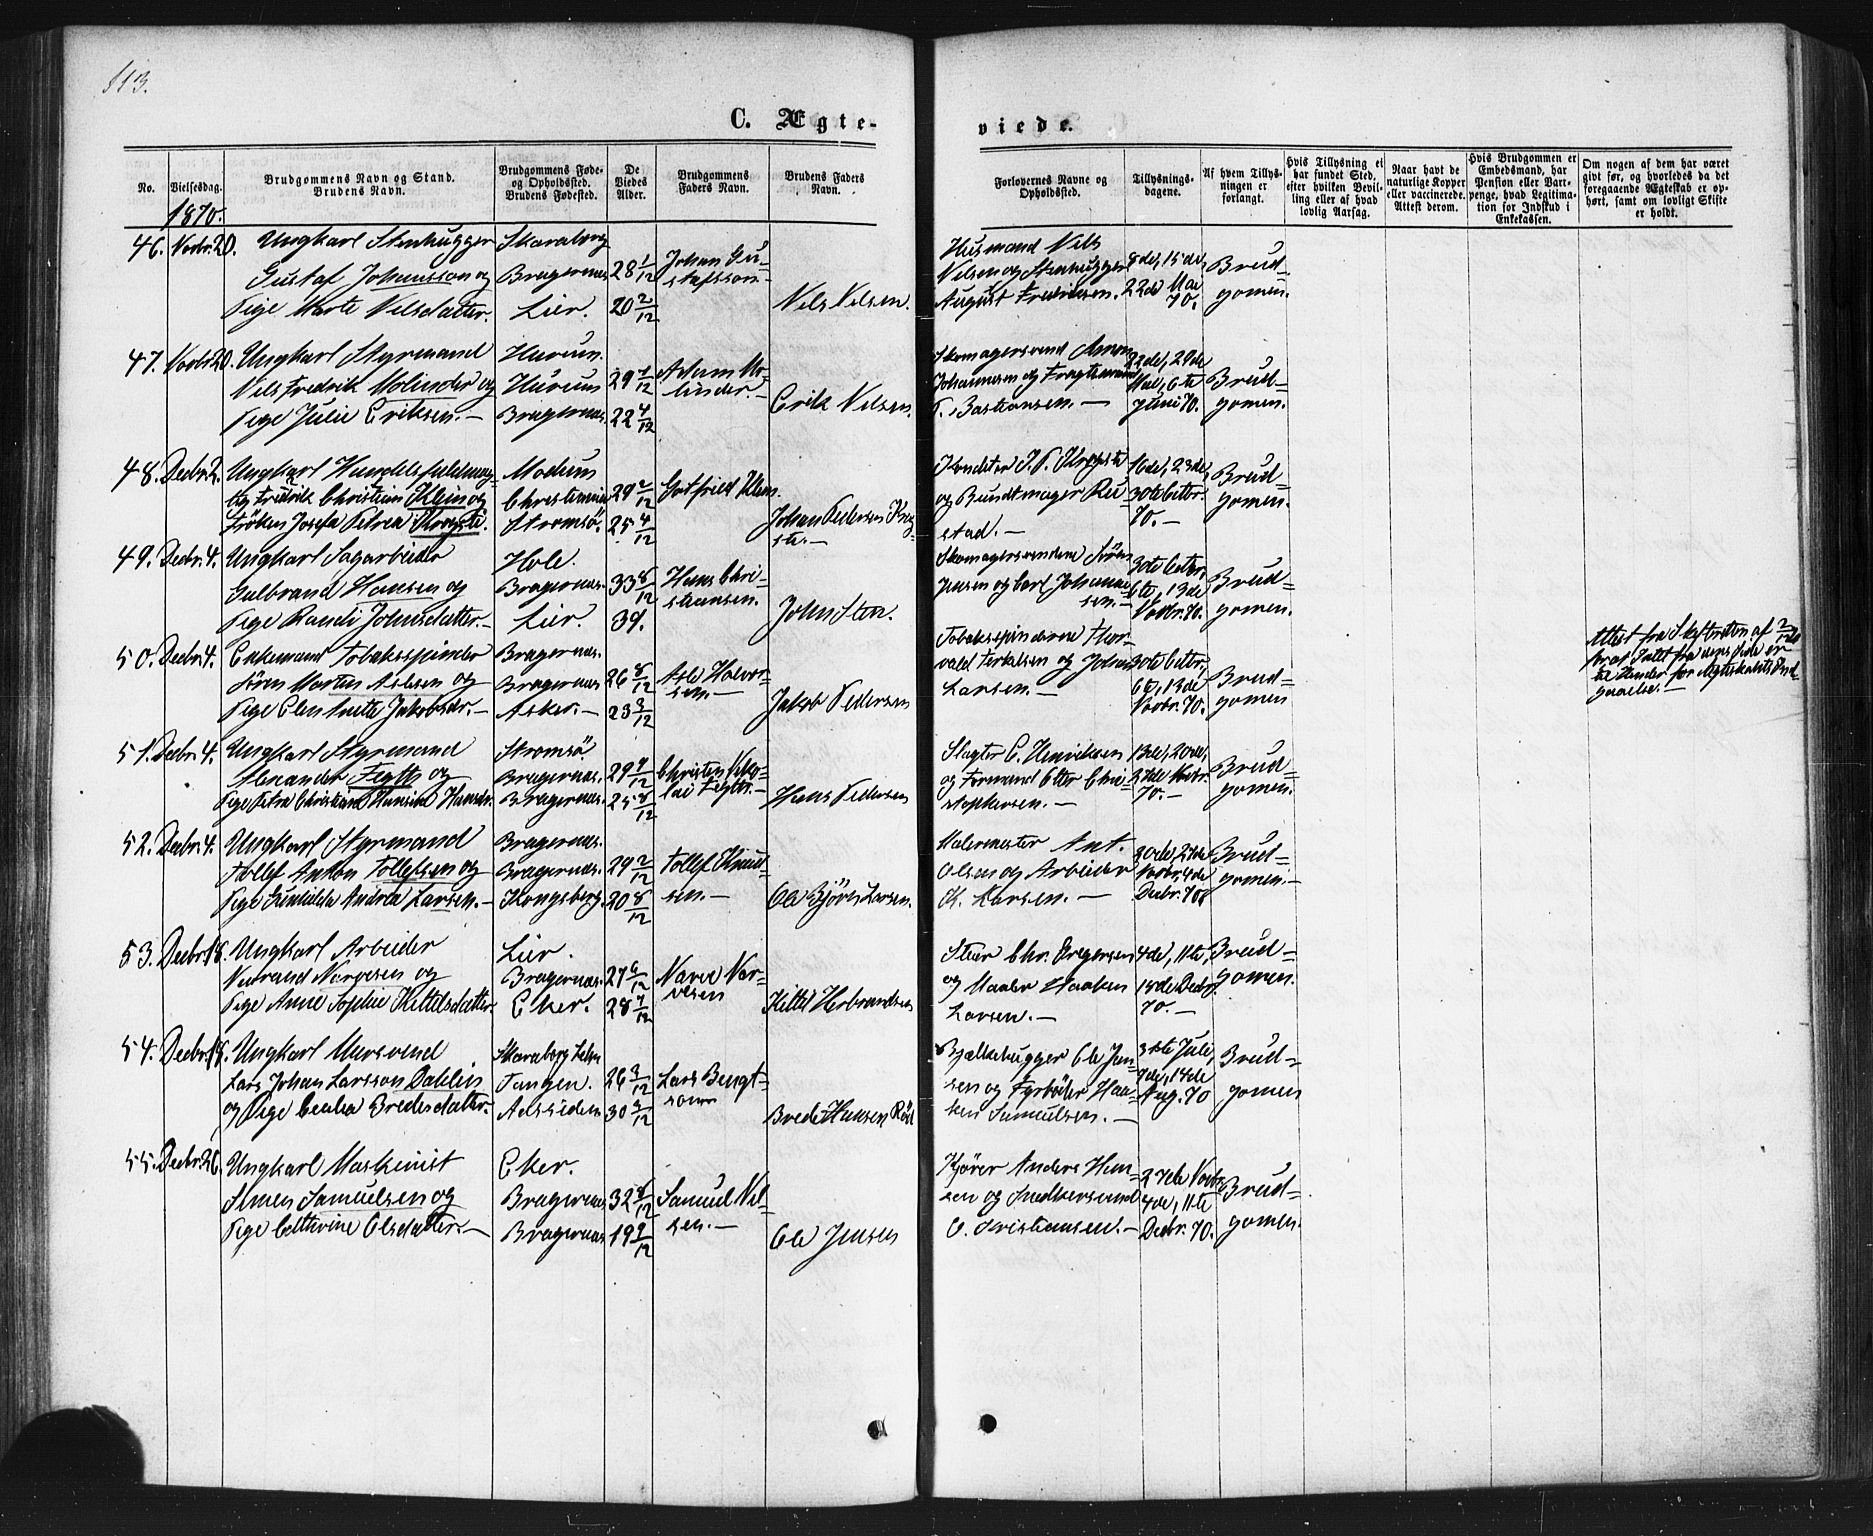 113.
C. Ægte-
viede.
No.
Vielsesdag.
Brudgommens Navn og Stand.
Brudens Navn.
Brudgommens Føde-
og Opholdsted.
Brudens Fødested.
De
Viedes
Alder.
Brudgommens
Faders Navn.
Brudens Faders
Navn.
Forlovernes Navne og
Opholdsted.
Tillysnings-
dagene.
Af hvem Tillys-
ningen er
forlangt.
Hvis Tillysning ei
har fundet Sted,
efter hvilken Bevil-
ling eller af hvad
lovlig Aarsag.
Naar havt de
naturlige Kopper
eller vaccinerede.
Attest derom.
Hvis Brudgommen er
Embedsmand, har
Pension eller Vart-
penge, hvad Legitima-
tion for Indskud i
Enkekassen.
Om nogen af dem har været
givt før, og hvorledes da det
foregaaende Ægteskab er op-
hørt, samt om lovligt Skifte
er holdt.
1870.
46. Novbr. 20. Ungkarl Stenhugger
Gustaf Johansson og
Pige Marte Nilsdatter.
Skaraborg
Bragernæs
Lier.
28 1/12
20 2/12
Johan Gu-
stafsson
Nils Nilsen.
Husmand Nils
Nilsen og Stenhugger
August Fredriksen.
8de, 15de,
22de Mai
70.
Brud-
gomen.
47. Novbr. 20. Ungkarl Styrmand
Nils Fredrik Molinder og
Pige Julie Eriksen. -
Hurum
Hurum
Bragernæs.
29 1/12
22 4/12
Adam Mo-
linder. -
Erik Nilsen.
Skomagersvend
Johannesen og
P. Bastiansen. -
22de, 29de
Mai, 6te
Juni 70.
Brud-
gomen.
48. Decbr. 2. Ungkarl
Fredrik Christian Klein og
Frøken Josefa Petrea Krogste.
Modum
Christiania
Strømsø.
29 2/12
25 4/12
Gotfried Klein.
Johan Pedersen Krog-
ste. -
Konditor J. P. Krogste
og Bundtmager Ru-
stad. -
16de, 23de,
30te Octbr.
70. -
Brud-
gomen.
49. Decbr. 4. Ungkarl Sagarbeider
Gulbrand Hansen og
Pige Randi Johnsdatter. -
Hole.
Bragernæs.
Lier.
33 8/12
39.
Hans Chri-
stiansen.
John Sten.
Skomagersvendene Sørn
Jensen og Carl Johanne-
sen. -
30te Octbr.,
6te, 13de
Novbr. 70.
Brud-
gomen.
50. Decbr. 4. Enkemand Tobaksspinder
Søren Martin Aslesen og
Pige Elen Anette Jakobsdr. -
Bragernæs.
Bragernæs
Asker. -
26 8/12
23 3/12
Asle Halvor-
sen. -
Jakob Pedersen
Tobaksspinderne Thor-
vald Terkelsen og Johan
Larsen. -
30te Octbr.,
6te, 13de
Novbr. 70.
Brud-
gomen
Attest fra Skifteretten af 2/12 70
for at Intet fra dens Side er
til Hinder for Ægteskabets Ind-
gaaelse. -
51. Decbr. 4. Ungkarl Styrmand
Alexander Fegth og
Pige Petra Christiane Hansine Hansdr.
Strømsø
Bragernæs.
Bragernæs.
29 7/12
25 8/12
Christen Niko-
lai Fegth. -
Hans Pedersen
Slagter C. Henriksen
og Formand Otter Chri-
stophersen. -
13de, 20de,
27de Novbr.
70. -
Brud-
gomen.
52. Decbr. 4. Ungkarl Styrmand
Tollef Anton Tollefsen og
Pige Gunhilda Andrea Larsen. -
Bragernæs.
Bragernæs.
Kongsberg.
29 2/12
20 8/12
Tollef Knud-
sen. -
Ole Bjørn Larsen.
Malermester Ant.
Olsen og Arbeider
K. Larsen. -
20de, 27de
Novbr., 4de
Decbr. 70.
Brud-
gomen. -
53. Decbr. 18. Ungkarl Arbeider
Narvesen og
Pige Anne Sophie Kittelsdatter.
Lier.
Bragernæs.
Eker.
27 6/12
28 7/12
Narve Nar-
vesen
Kittel Herbrandsen
Chr. Gregersen
og Maaler Haaken
Larsen. -
4de, 11te,
18de Decbr.
70. -
Brud-
gomen.
54. Decbr. 18. Ungkarl Mursvend
Lars Johan Larsson Dahlin
og Pige Cecilia Bredesdatter.
Skaraborg
Tangen.
Aassiden
26 3/12
30 3/12
Lars Bengt-
sson
Brede Hansen Rød
Bjelkehugger Ole Jen-
sen og Fyrbøder Haa-
ken Samuelsen. -
31te Juli,
7de, 14de
Aug. 70
Brud-
gomen
55. Decbr. 26. Ungkarl Maskinist
Simen Samuelsen og
Pige Cathrine Olsdatter. -
Eker.
Bragernæs
Bragernæs
32 8/12
19 9/12
Samuel Nil-
sen. -
Ole Jensen
Kjører Anders Han-
sen og Snedkersvend
O. Kristiansen. -
27de Novbr.
4de, 11te
Decbr. 70.
Brud-
gomen.